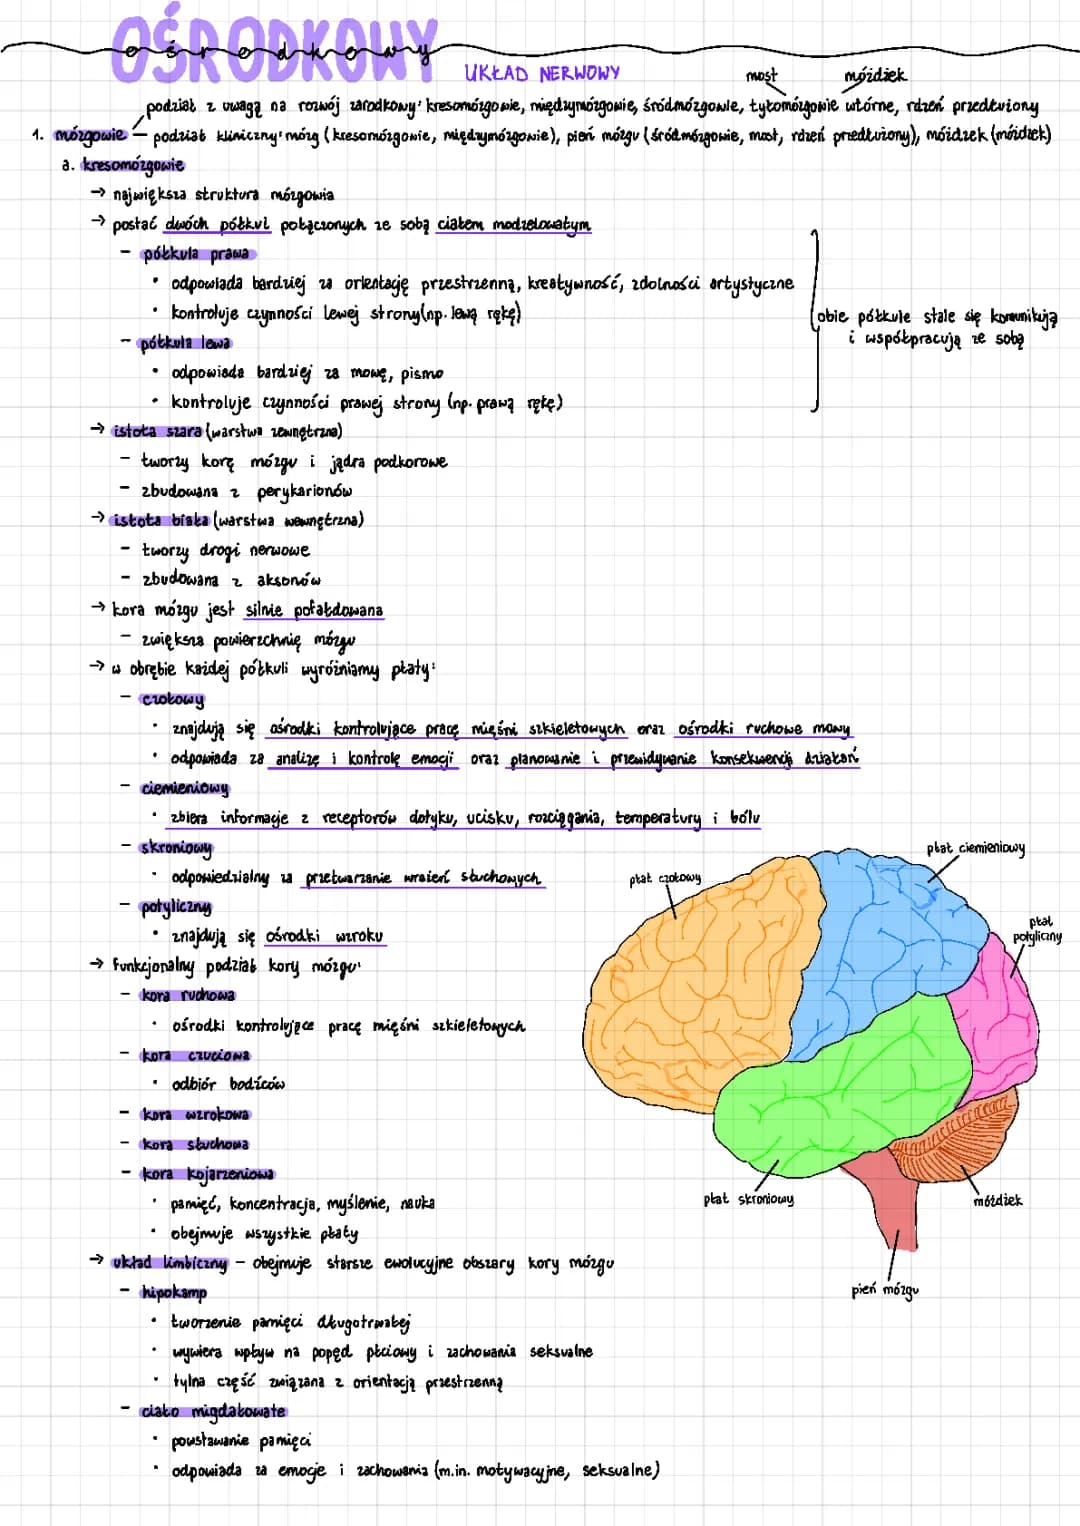 OŚRODKOWY
ośrodkowy
UKŁAD NERWOWY
most móżdżek
podział z uwagą na rozwój zarodkowy: kresomózgowie, międzymózgowie, śródmózgowie, tyłomózgowie wtórne, rdzeń przedłużony
1. mózgowie – podział kliniczny: mózg (kresomózgowie, międzymózgowie), pień mózgu (śródmózgowie, most, rdzeń przedłużony), móżdżek (móżdżek)
a. kresomózgowie
→ największa struktura mózgowia
→ postać dwóch półkul połączonych ze sobą ciałem modzelowatym
- półkula prawa
• odpowiada bardziej za orientację przestrzenną, kreatywność, zdolności artystyczne
• kontroluje czynności lewej strony (np. lewą rękę)
obie półkule stale się komunikują
i współpracują ze sobą
- półkula lewa
• odpowiada bardziej za mowę, pismo
• kontroluje czynności prawej strony (np. prawą rękę)
→ istota szara (warstwa zewnętrzna)
- tworzy korę mózgu i jądra podkorowe
- zbudowana z perykarionów
→ istota biała (warstwa wewnętrzna)
- tworzy drogi nerwowe
- zbudowana z aksonów
→ kora mózgu jest silnie pofałdowana
- zwiększa powierzchnię mózgu
→ w obrębie każdej półkuli wyróżniamy płaty:
- czołowy
• znajdują się ośrodki kontrolujące pracę mięśni szkieletowych oraz ośrodki ruchowe mowy
• odpowiada za analizę i kontrolę emocji oraz planowanie i przewidywanie konsekwencji działań
- ciemieniowy
• zbiera informacje z receptorów dotyku, ucisku, rozciągania, temperatury i bólu
- skroniowy
• odpowiedzialny za przetwarzanie wrażeń słuchowych
- potyliczny
• znajdują się ośrodki wzroku
→ funkcjonalny podział kory mózgu:
- kora ruchowa
• ośrodki kontrolujące pracę mięśni szkieletowych
- kora czuciowa
• odbiór bodźców
- kora wzrokowa
- kora słuchowa
- kora kojarzeniowa
• pamięć, koncentracja, myślenie, nauka
• obejmuje wszystkie płaty
→ układ limbiczny – obejmuje starsze ewolucyjne obszary kory mózgu
- hipokamp
• tworzenie pamięci długotrwałej
• wywiera wpływ na popęd płciowy i zachowania seksualne
• tylna część związana z orientacją przestrzenną
- ciało migdałowate
• powstawanie pamięci
• odpowiada za emocje i zachowania (m.in. motywacyjne, seksualne)
płat czołowy
płat ciemieniowy
płat
potyliczny
płat skroniowy
móżdżek
pień mózgu